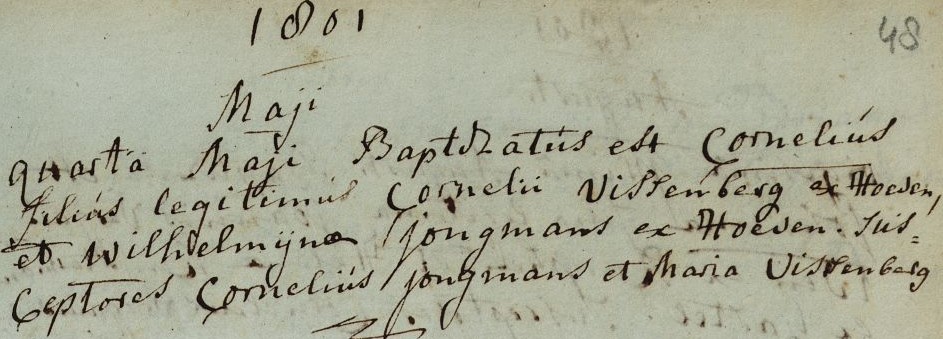 1801
48
Maji
quarta Maji Baptizatus est Cornelius
filius legitimus Cornelii Vissenberg ex Hoeven,
et Wilhelmijnae jongmans ex Hoeven. Sus=
ceptores Cornelius jongmans et Maria Vissenberg